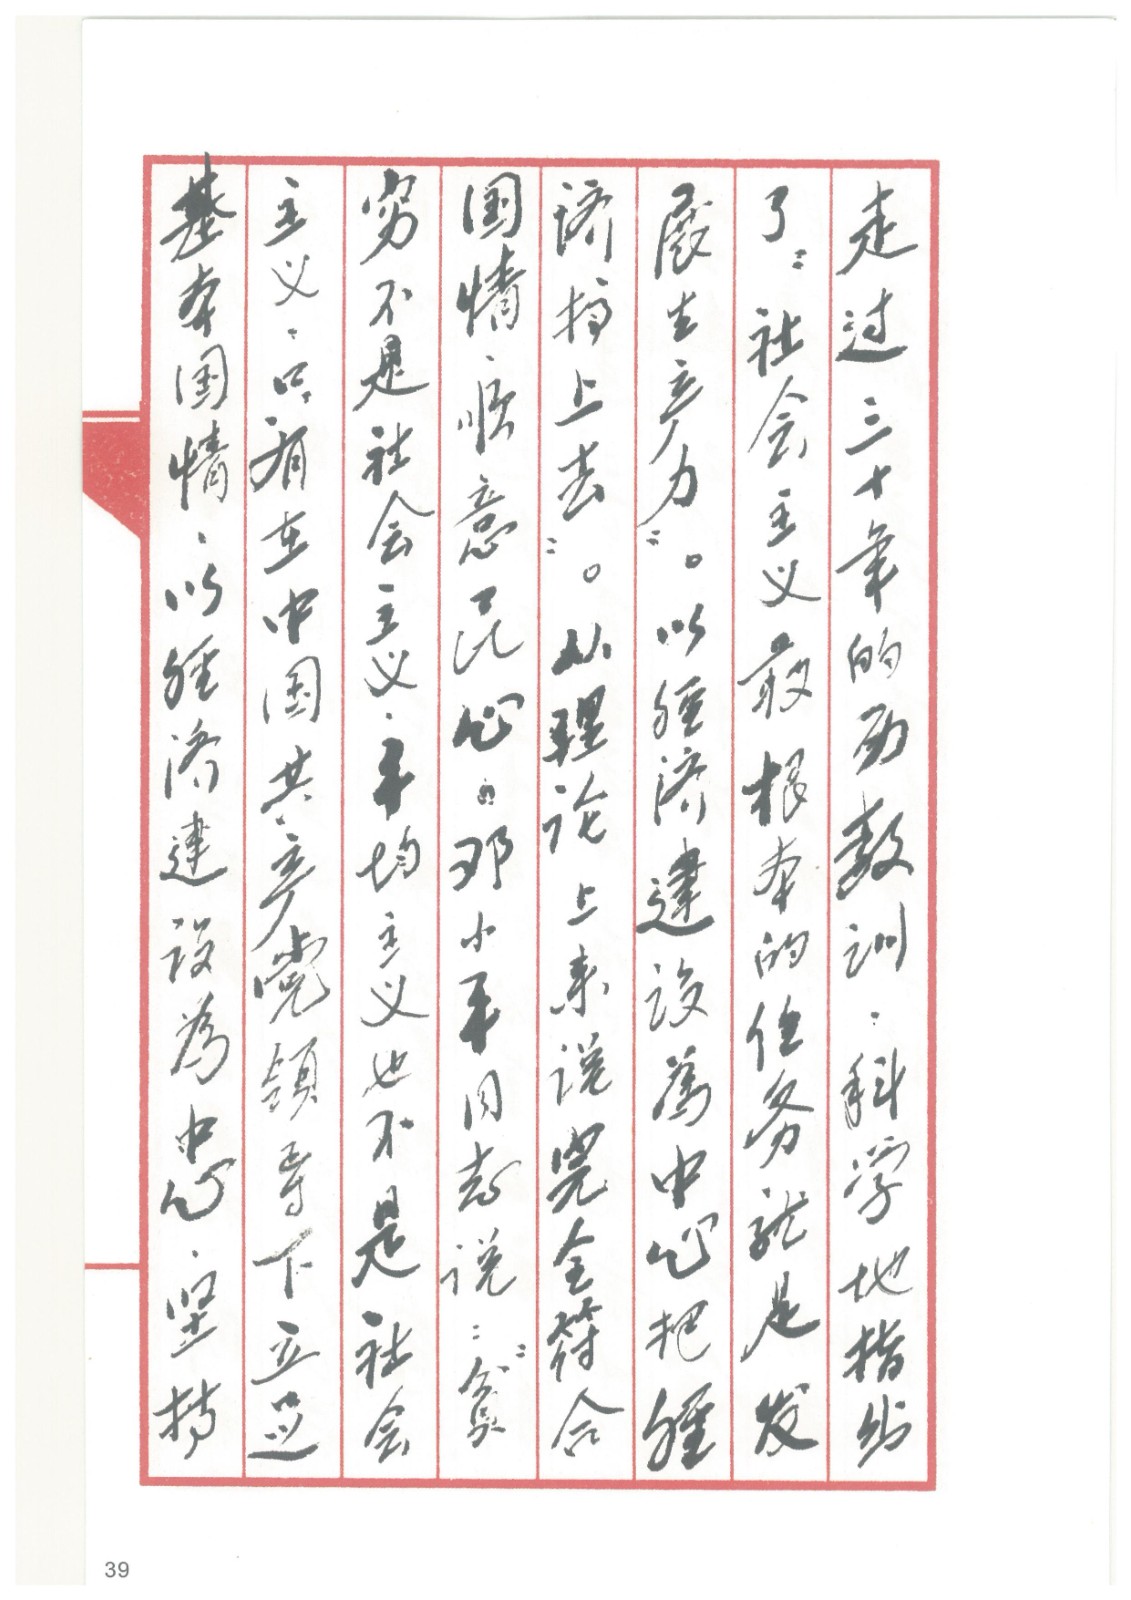 走过三十年的历教训：科学地指出
了：“社会主义最根本的任务就是发
展生产力”。以经济建设为中心把经
济搞上去”。从理论上来说完全符合
国情、顺意民心。邓小平同志说：“贫
穷不是社会主义、平均主义也不是社会
主义、只有在中国共产党领导下立足
基本国情、以经济建设为中心、坚持
39